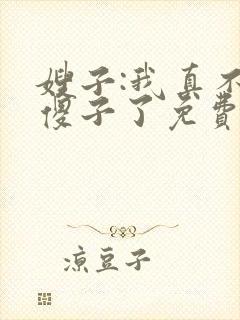 嫂子:我真不
傻子了免费
凉豆子